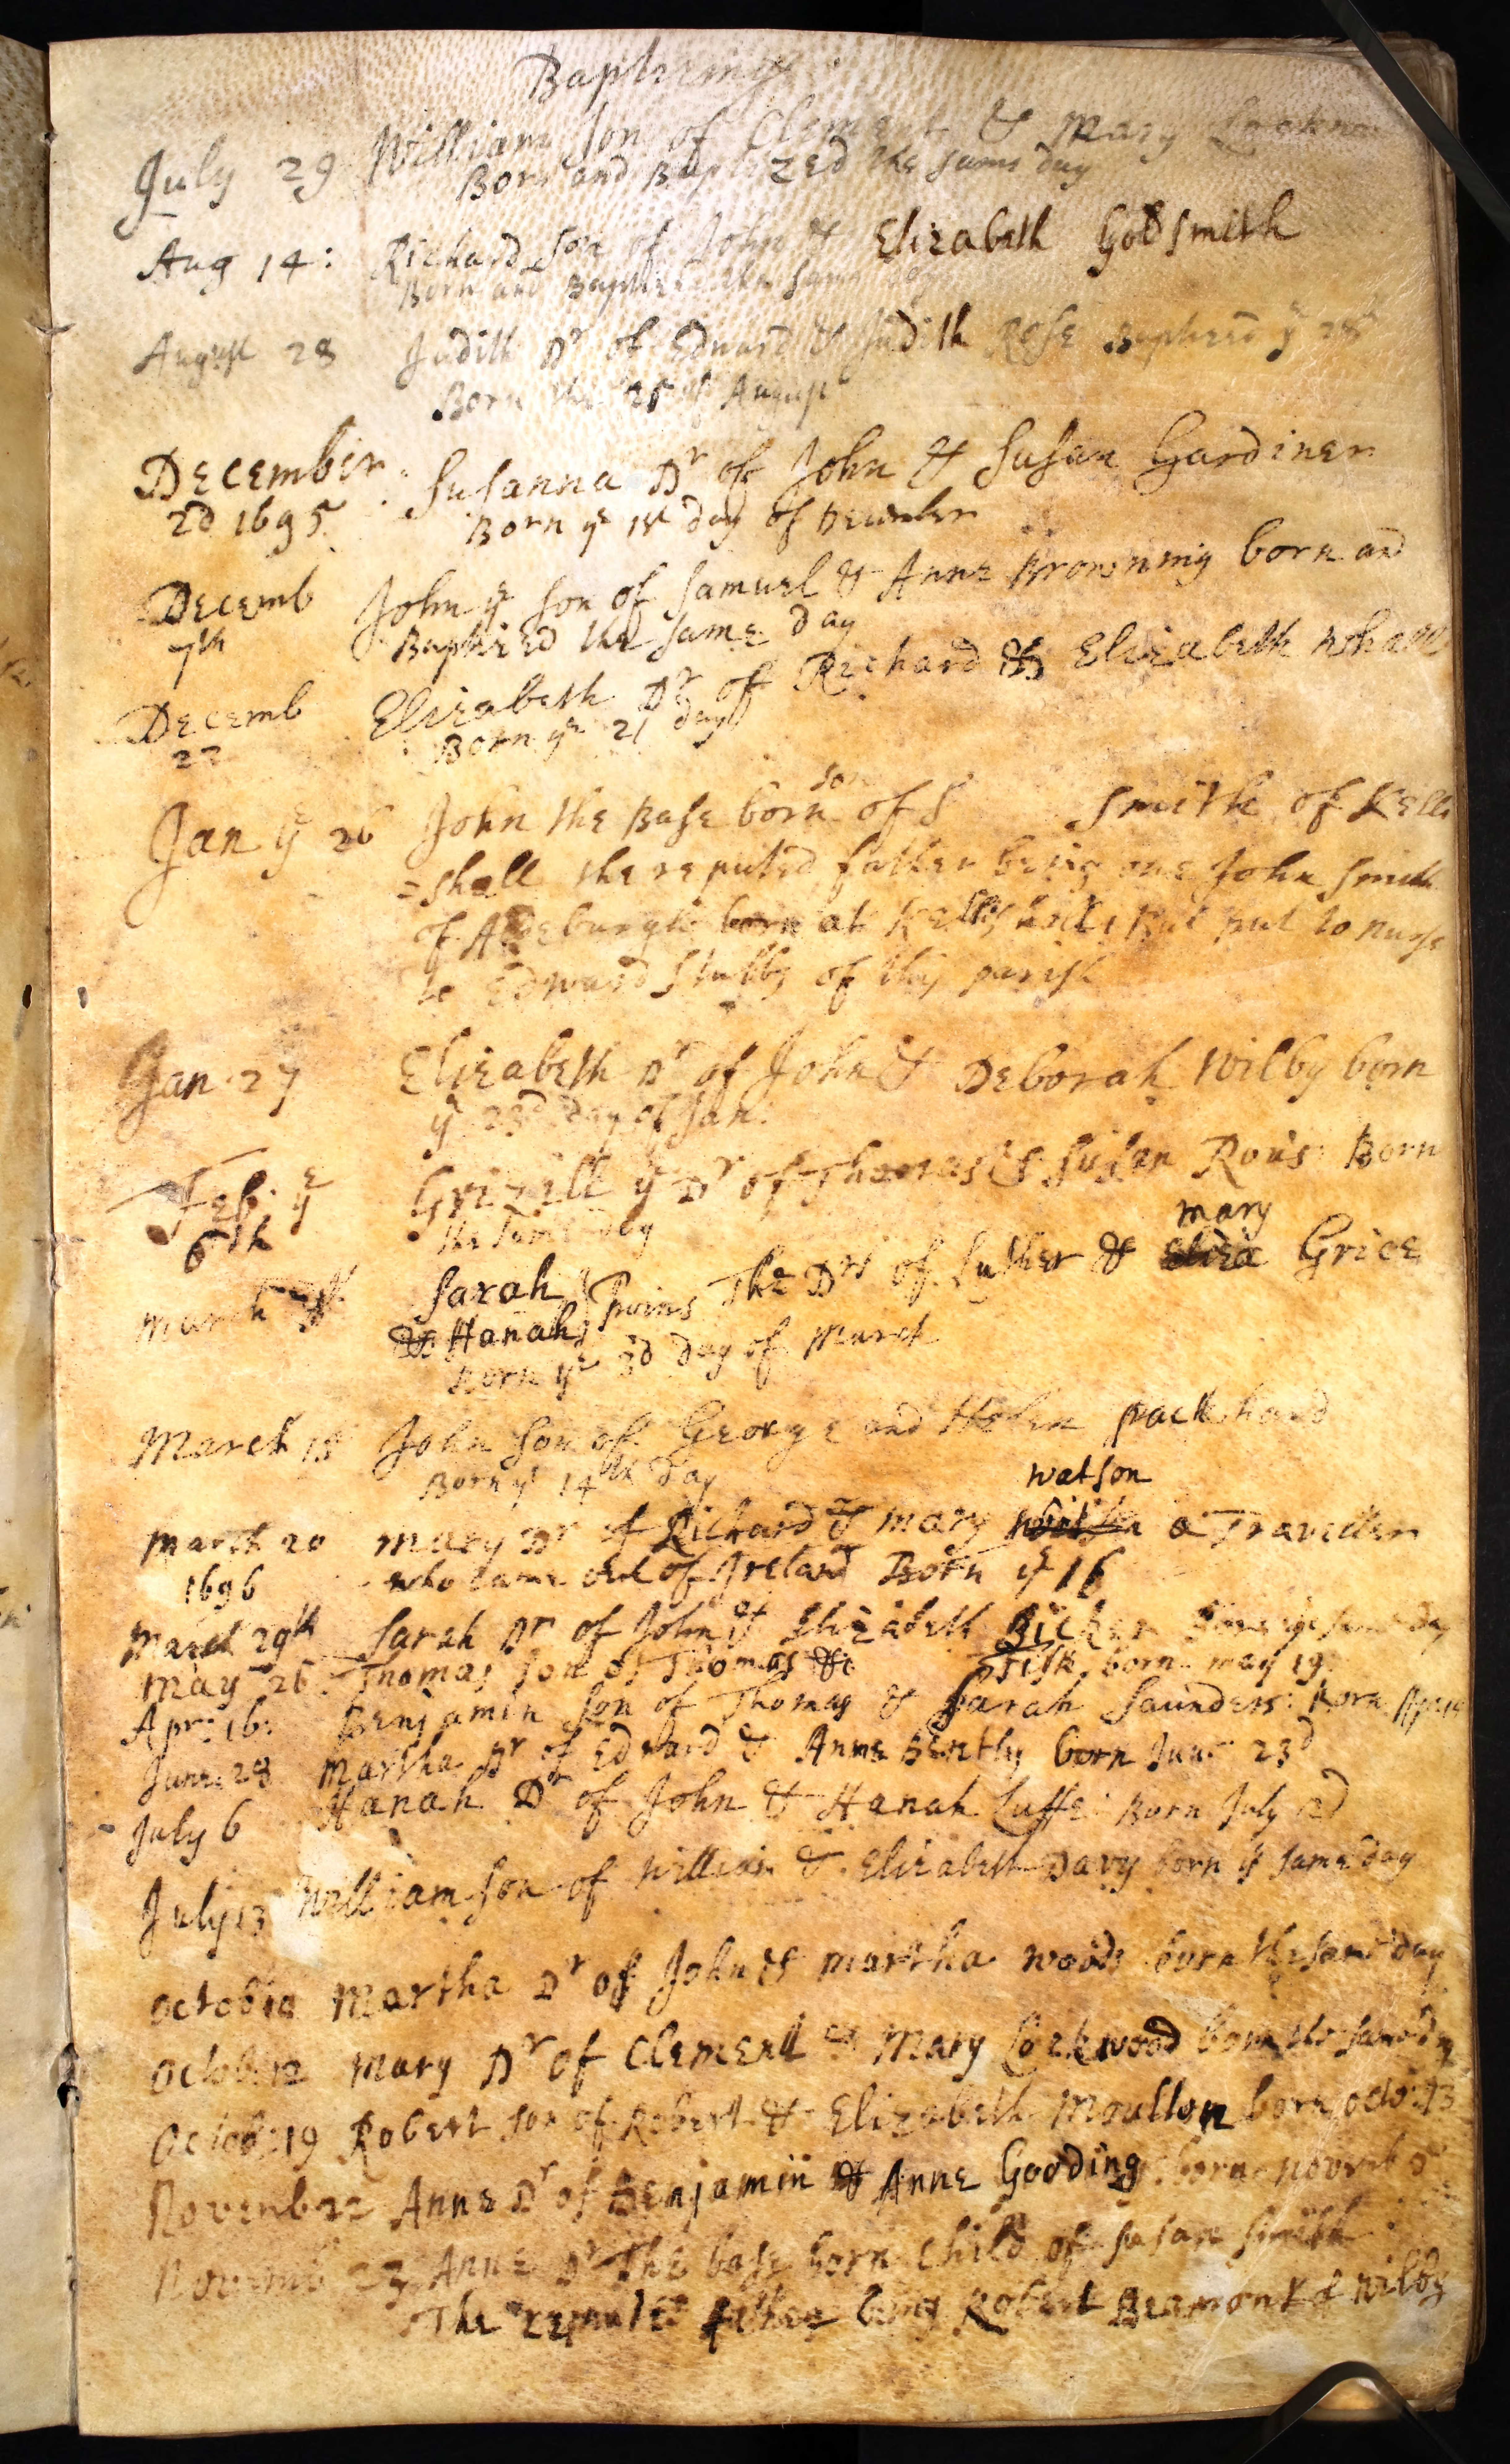 Baptizings
July 29 William son of Clement & Mary
Born and Baptized the same day
Aug 14: Richard son of John & Elizabeth Goldsmith
Born and Baptized the same day
August 28 Judith Dr of Edward & Judith Rose Baptized ye 28th
Born the 25 of August
December Susanna Dr of John & Susan Gardiner
2d 1695 Born ye 1st day of December
Decemb John ye son of Samuel & Anne Browning born and
7th Baptized the same day
Decemb Elizabeth Dr of Richard & Elizabeth
22 Born ye 21 day
son
Jan ye 26 John the Base born of S Smith of Kell
=shall the reputed father being one John Smith
of Aldeburgh born at Kellshall, But put to nurse
to Edward Stubbs of this parish
Jan 27 Elizabeth Dr of John & Deborah Wilby born
ye 23d day of Jan:
Feb: ye Grizill ye Dr of Thomas & Susan Rous: Born
6th the same day
mary
March Sarah Twins The Drs of Luther & Eliza Grice
& Hanah
Born ye 3d day of March
March 18 John son of George and Helen packhard
Born ye 14th day
watson
March 20 Mary Dr of Richard & Mary a Traveller
1696 who came out of Ireland Born ye 16
March 29th Sarah Dr of John & Elizabeth Bicker Born ye same day
May 26 Thomas son of Thomas & Fisk born may 19:
Apr: 16: Benjamin son of Thomas & Sarah Saunders: Born
June 28 Martha Dr of Edward & Anne Bently born June 23d
July 6 Hanah Dr of John & Hanah Cuffe: Born July 2d
July 13 William son of William & Elizabeth Davy born ye same day
Octob 10 Martha Dr of John & Martha Woods born the same day
Octob: 12 Mary Dr of Clement & Mary Lockwood born the same day
Octob: 19 Robert son of Robert & Elizabeth Moulton born octo: 13
Novemb 22 Anne Dr of Benjamin & Anne Gooding: born novemb
Novemb 23 Anne Dr The base born child of Susan Smith
The reputed father being Robert Beamont of Wilby